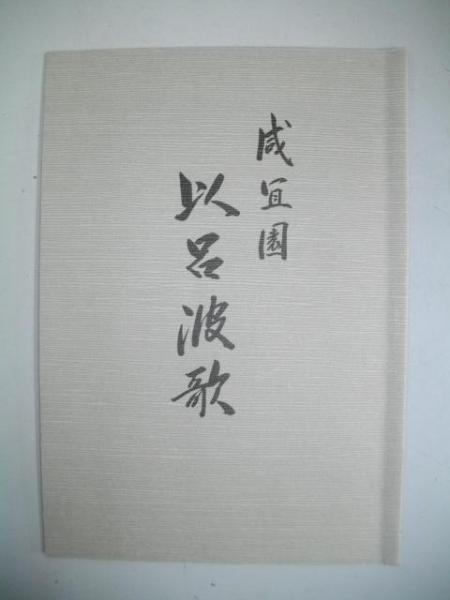 咸宜園
以呂波歌